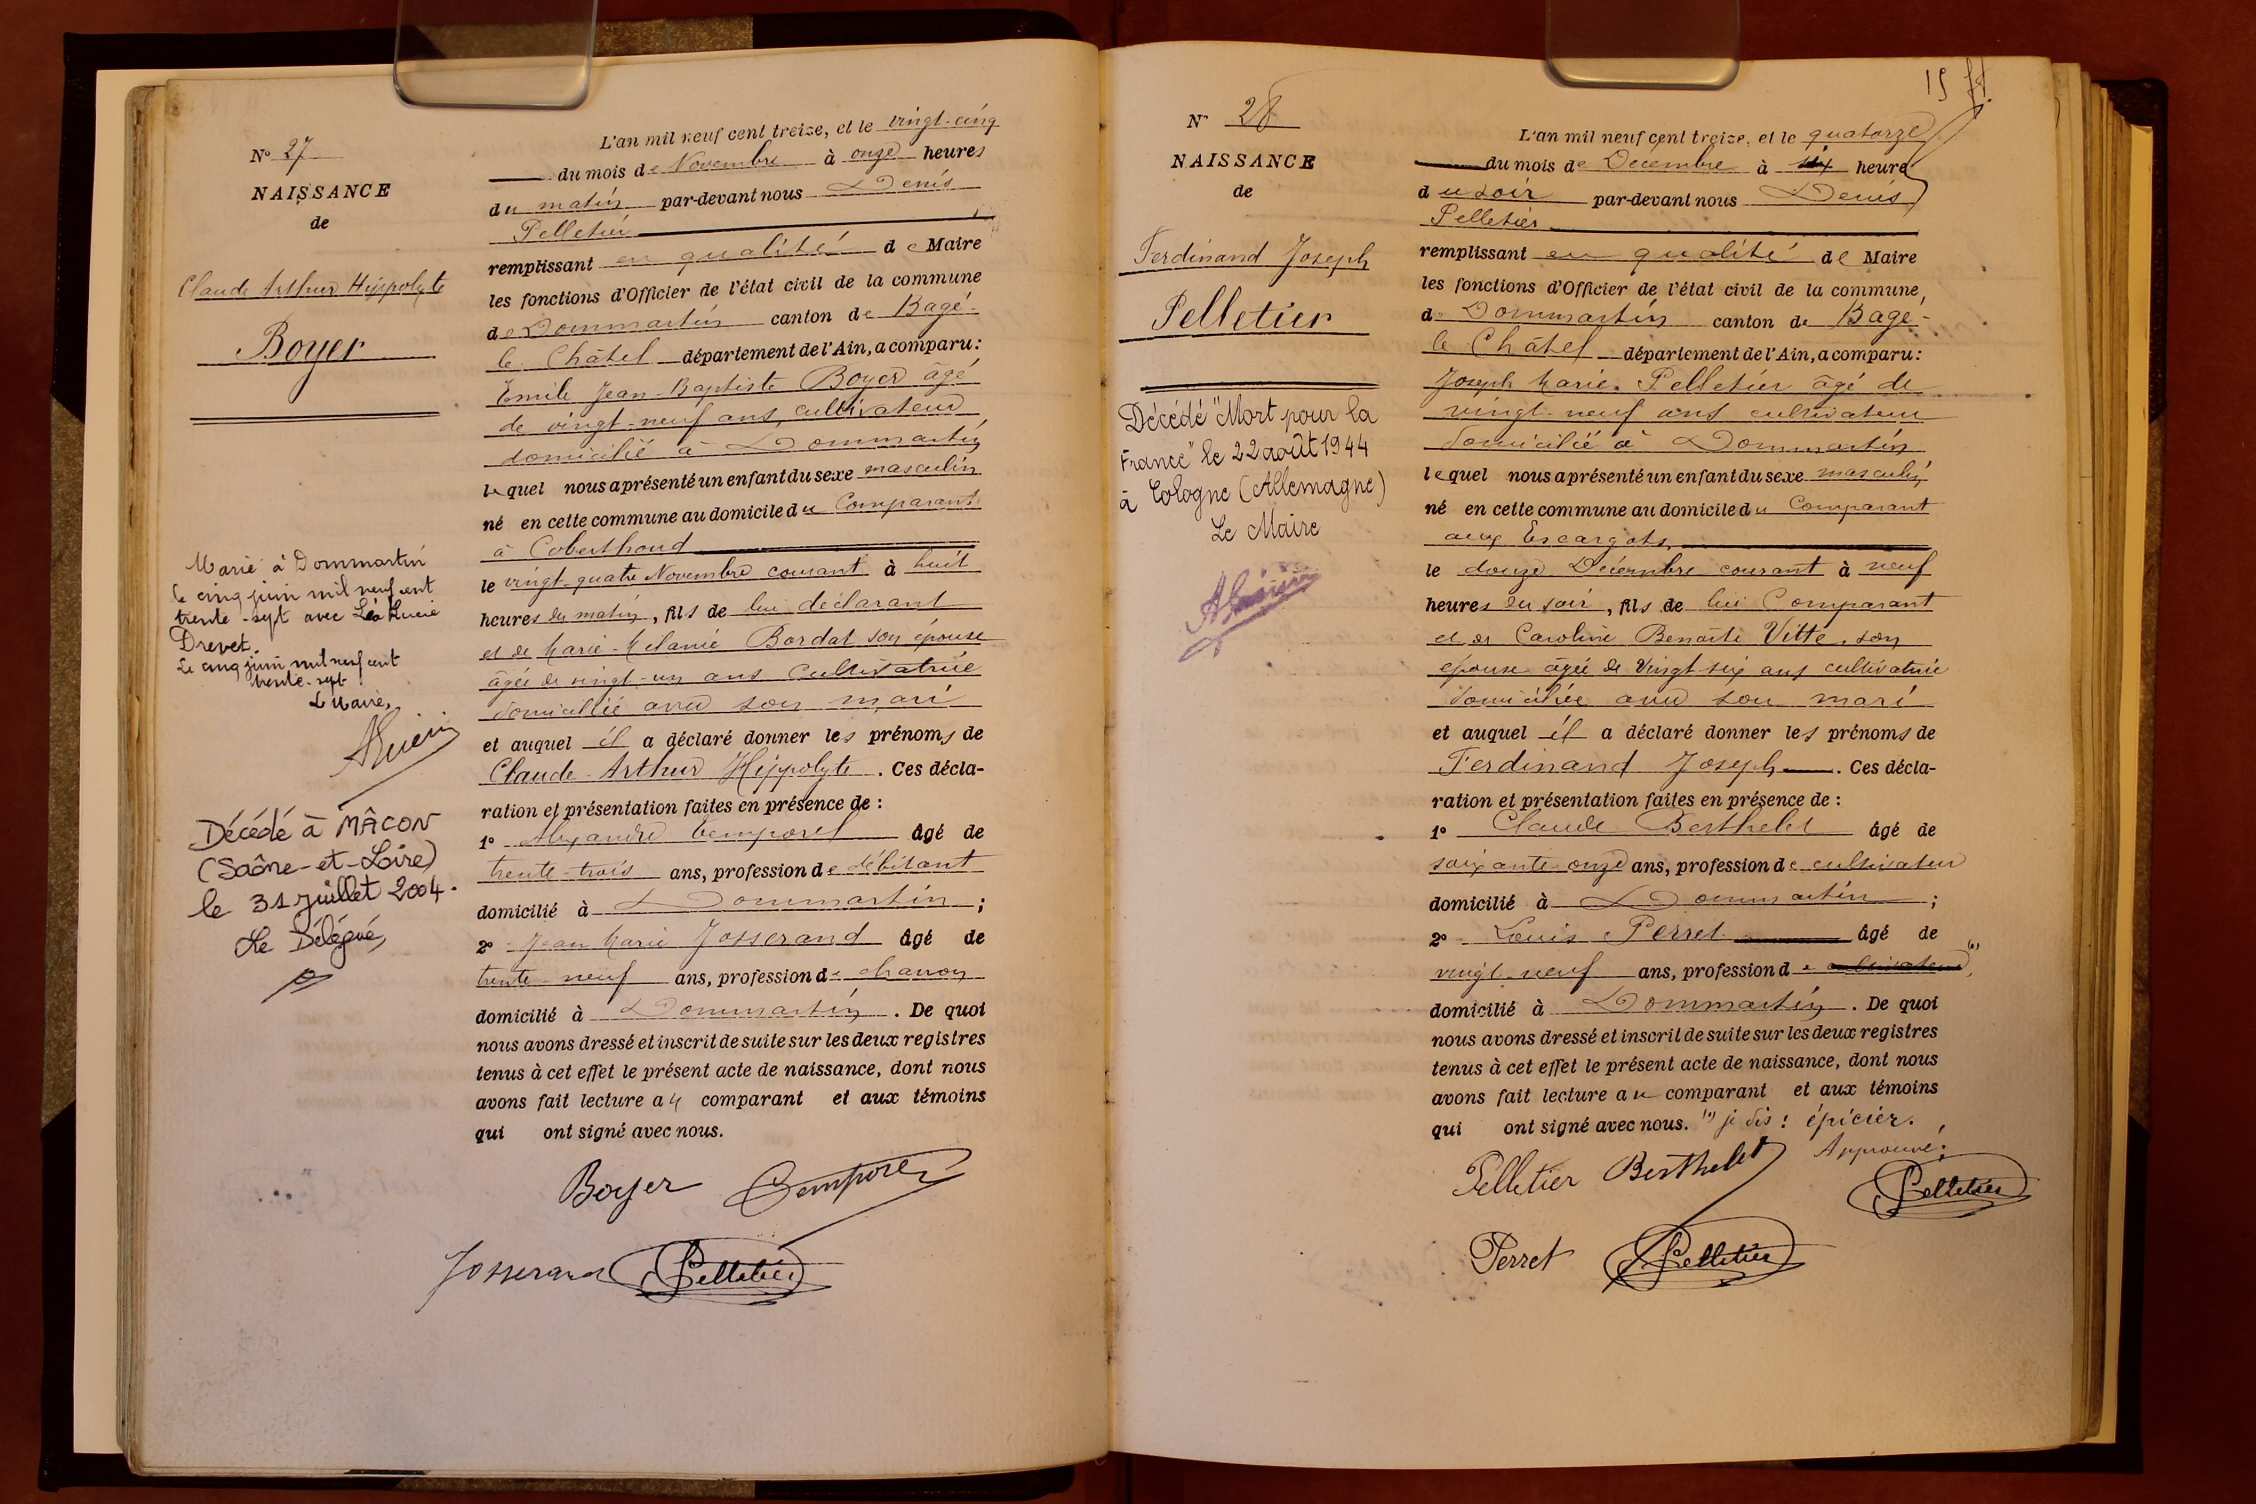 N° 27
NAISSANCE
de
Claude Arthur Hippolyte
Boyer
Marié à Dommartin
le cinq juin mil neuf cent
trente-sept avec Léa Lucie
Drevet.
Le cinq juin mil neuf cent
trente-sept
Le Maire,
Décédé à MÂCON
(Saône-et-Loire)
le 31 juillet 2004.
Le Délégué,
L'an mil neuf cent treize, et le vingt-cinq
du mois de Novembre à onze heures
du matin par-devant nous Denis
Pelletier
remplissant en qualité de Maire
les fonctions d'Officier de l'état civil de la commune
de Dommartin canton de Bagé-
le-Châtel département de l'Ain, a comparu:
Emile Jean-Baptiste Boyer âgé
de vingt-neuf ans, cultivateur
domicilié à Dommartin
lequel nous a présenté un enfant du sexe masculin
né en cette commune au domicile du Comparant
à Coberthoud
le vingt-quatre Novembre courant à huit
heures du matin, fils de lui déclarant
et de Marie-Mélanie Bordat son épouse
âgée de vingt-un ans Cultivatrice
domiciliée avec son mari
et auquel il a déclaré donner les prénoms de
Claude-Arthur Hippolyte. Ces décla-
ration et présentation faites en présence de :
1° Alexandre Temporel âgé de
trente-trois ans, profession de débitant
domicilié à Dommartin ;
2° Jean Marie Josserand âgé de
trente-neuf ans, profession de charron
domicilié à Dommartin. De quoi
nous avons dressé et inscrit de suite sur les deux registres
tenus à cet effet le présent acte de naissance, dont nous
avons fait lecture au comparant et aux témoins
qui ont signé avec nous.
Boyer Temporel
Josserand Pelletier
15
N° 28
NAISSANCE
de
Ferdinand Joseph
Pelletier
Décédé "Mort pour la
France" le 22 août 1944
à Cologne (Allemagne)
Le Maire
L'an mil neuf cent treize, et le quatorze
du mois de Decembre à six heures
du soir par-devant nous Denis
Pelletier
remplissant en qualité de Maire
les fonctions d'Officier de l'état civil de la commune
de Dommartin canton de Bagé-
le-Châtel département de l'Ain, a comparu:
Joseph Marie Pelletier âgé de
vingt-neuf ans cultivateur
domicilié à Dommartin
lequel nous a présenté un enfant du sexe masculin
né en cette commune au domicile du Comparant
aux Escargots
le douze Décembre courant à neuf
heures du soir, fils de lui Comparant
et de Caroline Benoîte Vitte, son
épouse âgée de vingt six ans cultivatrice
domiciliée avec son mari
et auquel il a déclaré donner les prénoms de
Ferdinand Joseph. Ces décla-
ration et présentation faites en présence de :
1° Claude Berthelet âgé de
soixante onze ans, profession de cultivateur
domicilié à Dommartin ;
2° Louis Perret âgé de
vingt-neuf ans, profession de cultivateur (1)
domicilié à Dommartin. De quoi
nous avons dressé et inscrit de suite sur les deux registres
tenus à cet effet le présent acte de naissance, dont nous
avons fait lecture au comparant et aux témoins
qui ont signé avec nous. (1) je dis : épicier.
Approuvé :
Pelletier Berthelet Pelletier
Perret Pelletier